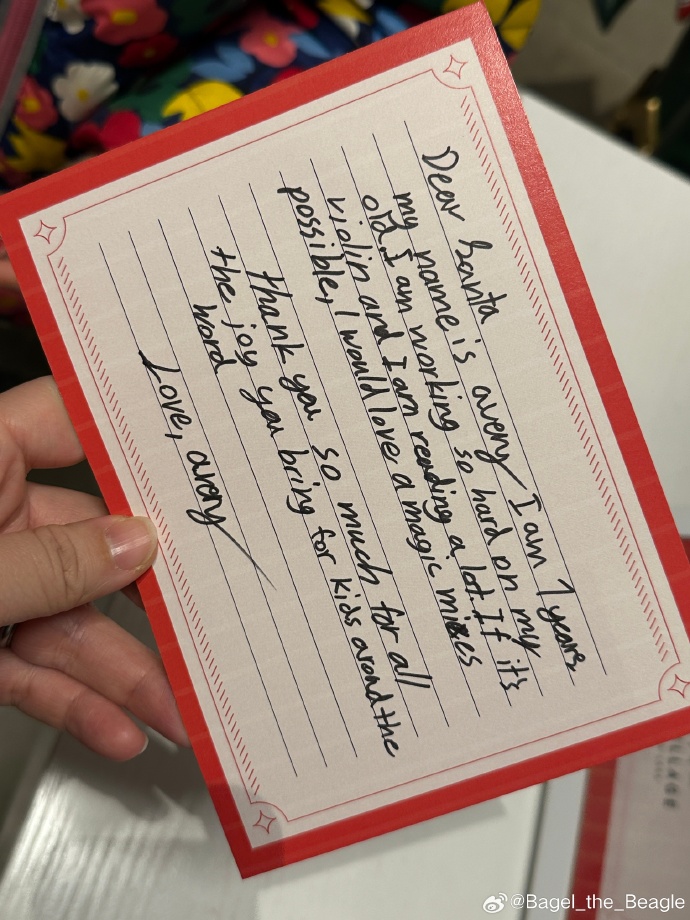 Dear Santa
my name is avery I am 7 years
old. I am working so hard on my
violin and I am reading a lot. If it's
possible, I would love a magic mixes
thank you so much for all
the joy you bring for kids arond the
word
Love, avery
LLAGE
@Bagel_the_Beagle